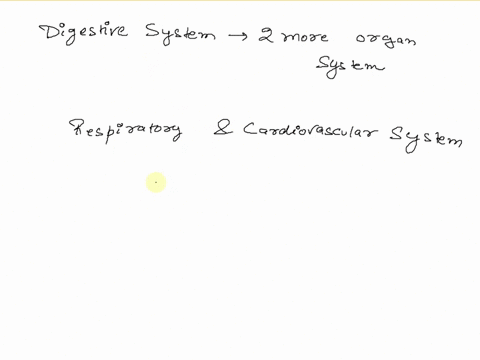 Digestive System → 2 more organ
System
Respiratory & Cardiovascular System